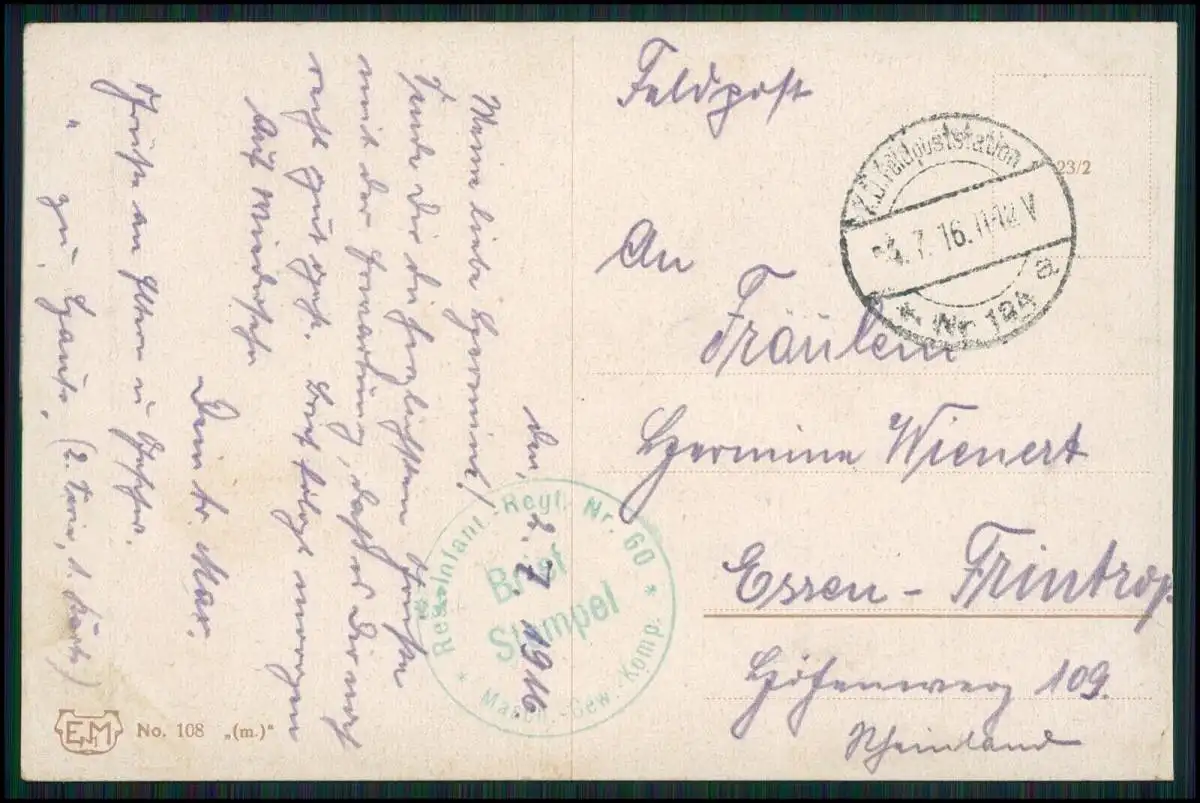 den, 2. 7. 1916
Meine liebe Hermine!
Sende Dir die herzlichsten Grüße
mit der Erwartung, daß es Dir noch
recht gut geht. Brief folgt morgen
Auf Wiedersehn
Dein tr. Max.
Grüße an Eltern u. Geschw.
" zu Hause. (2. 1. Karte)
Feldpost
K.D. Feldpoststation
*4.7.16.11-12V
* Nr. 194 a
23/2
An
Fräulein
Hermine Wienert
Essen - Frintrop
Höhenweg 109.
Rheinland
Res. Infant.-Regt. Nr. 60
Brief
Stempel
* Masch.-Gew.-Komp. *
EM
No. 108 „(m.)"